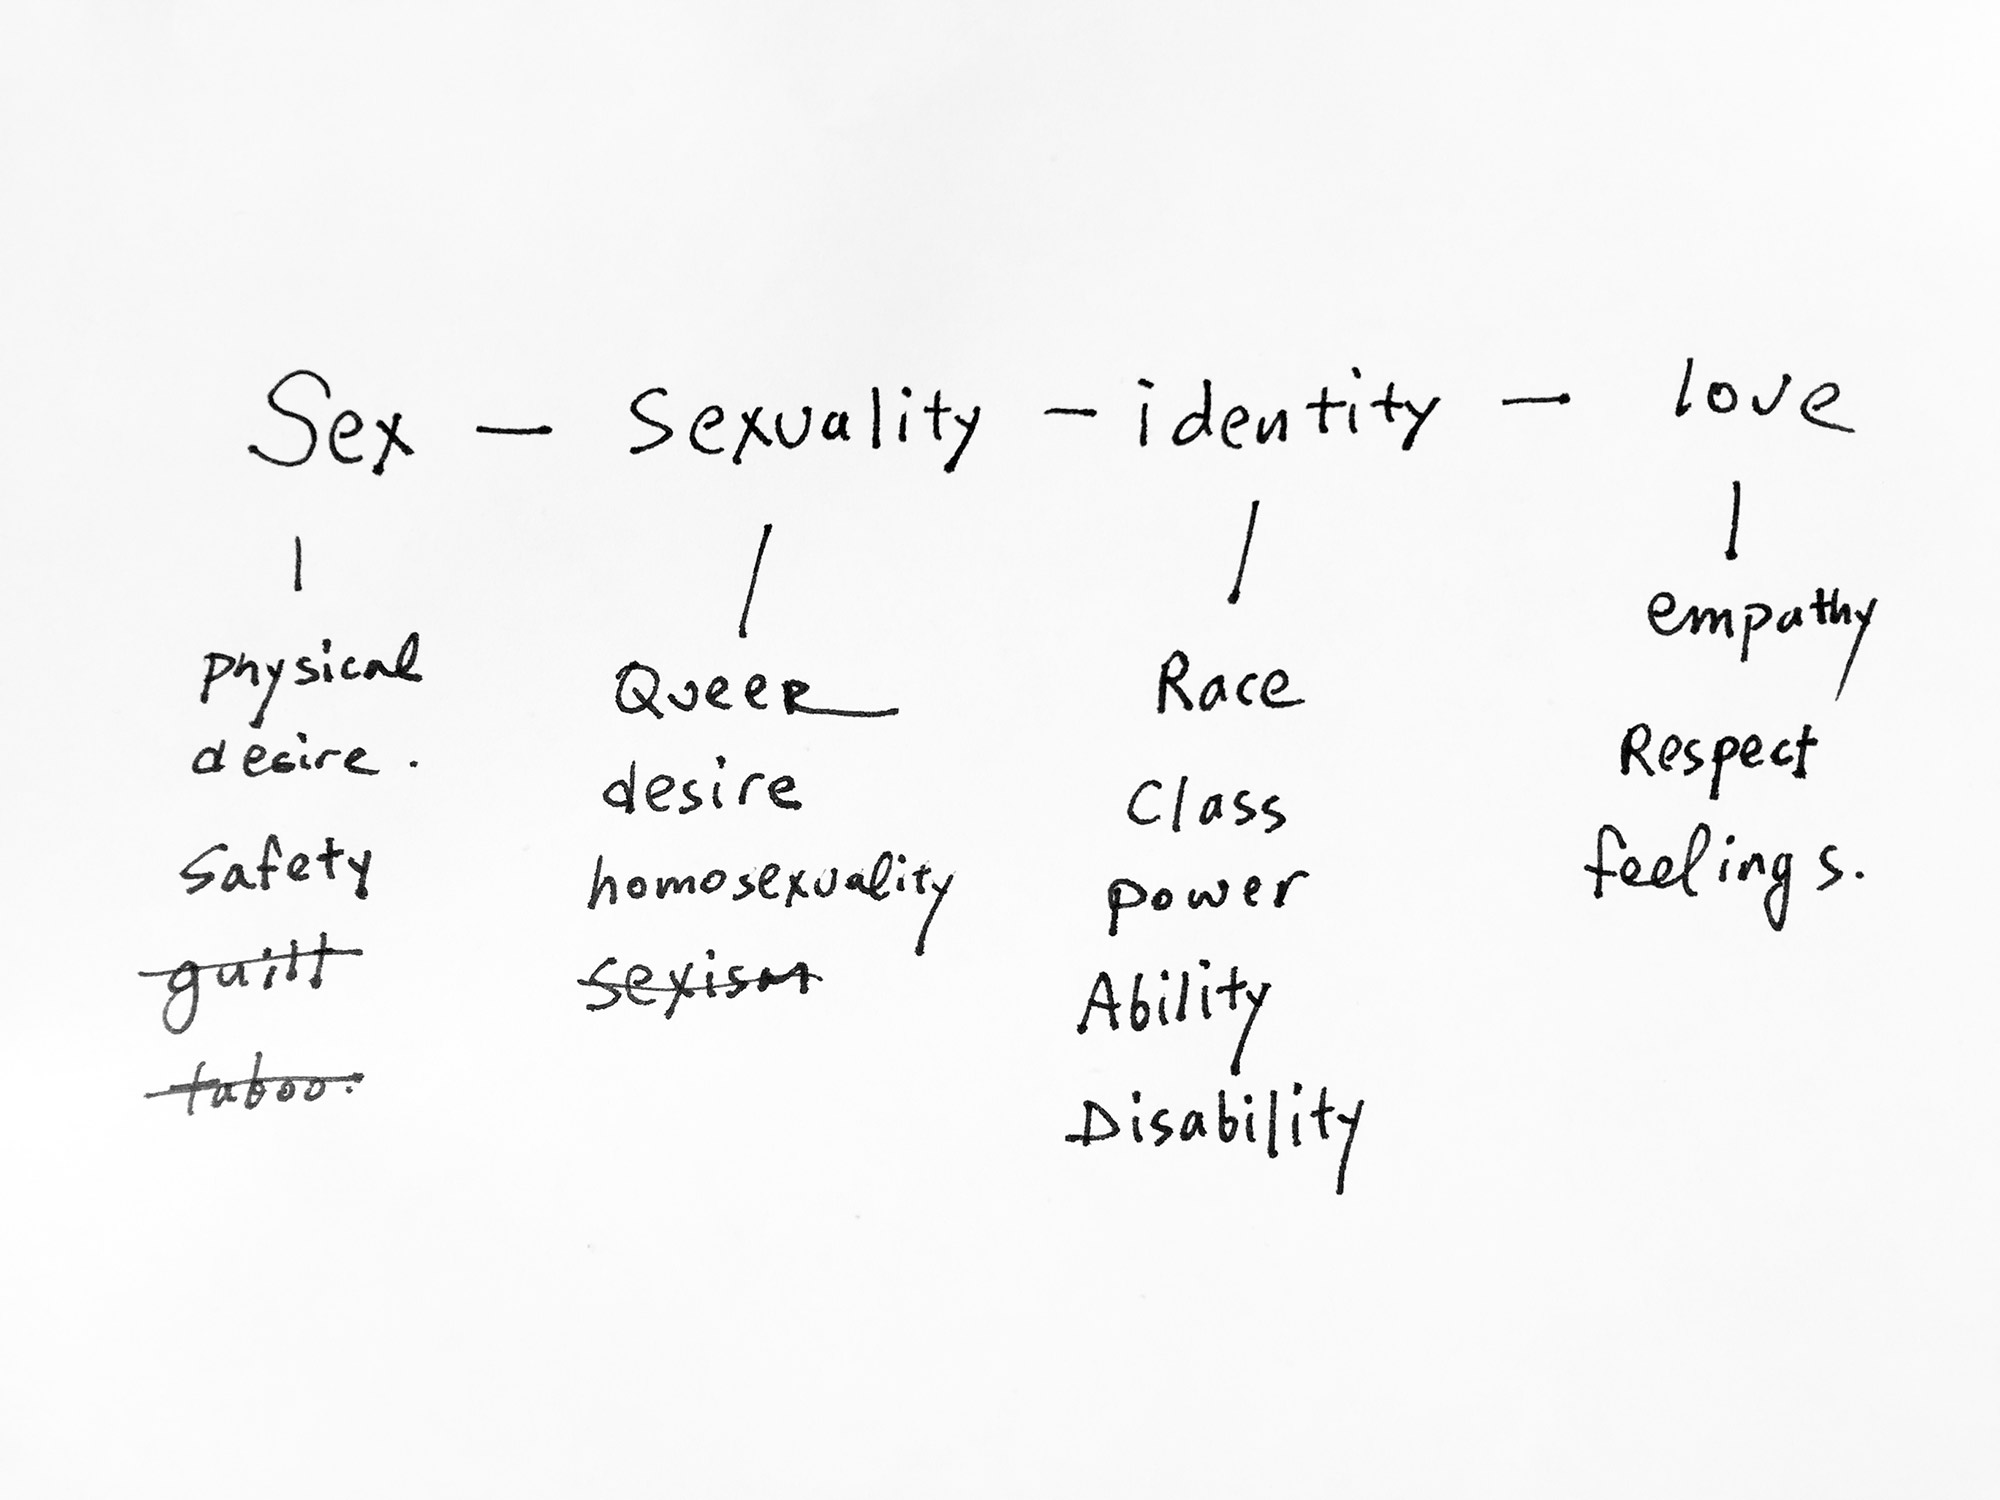 Sex — Sexuality — identity — love
physical
desire.
Safety
guilt
taboo.
Queer
desire
homosexuality
sexism
Race
Class
power
Ability
Disability
empathy
Respect
feelings.